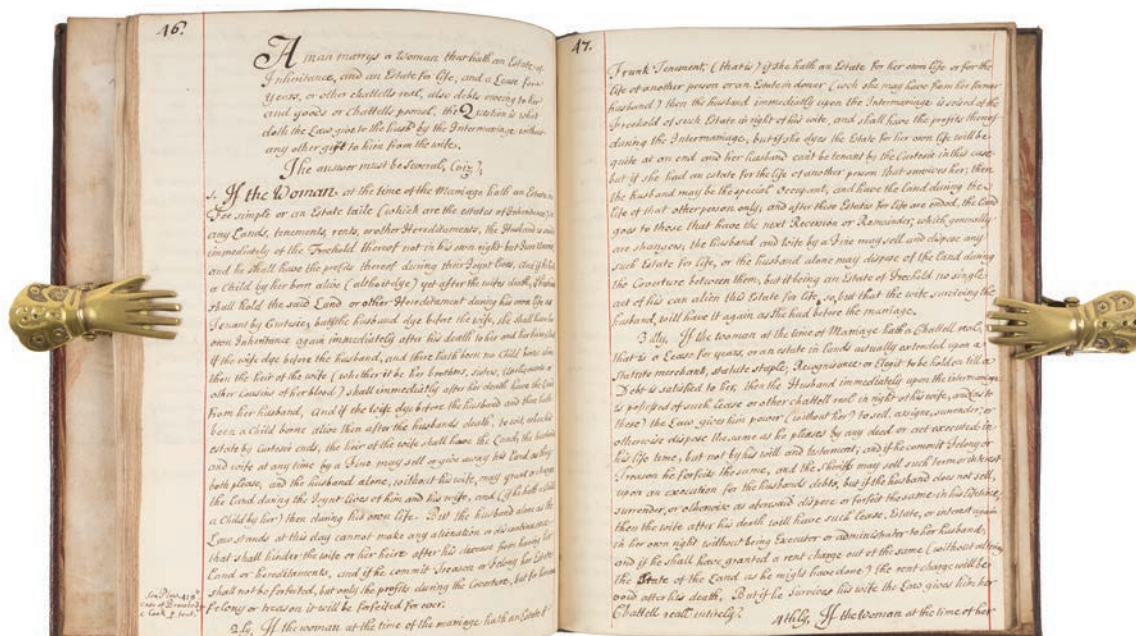 46.
A man marrys a Woman that hath an Estate of
Inheritance, and an Estate for life, and a Lease for
Years, or other chattells real, also debts oweing to her
and goods or Chattells psonel, the Question is what
doth the Law give to the husbd by the Intermariage without
any other gift to him from the wife.
The answer must be Several, (viz)
1. If the Woman at the time of the Mariage hath an Estate in
Fee simple or an Estate taile (which are the estates of Inheritance) in
any Lands, tenements, rents, or other Hereditaments, the Husband is
immediately of the Freehold thereof not in his own right but
and he shall have the profits thereof during their Joynt lives, and if he hath
a Child by her born alive (altho it dye) yet after the wifes death,
shall hold the said Land or other Hereditament during his own life as
Tenant by Curtesie, but if the husband dye before the wife, she shall have her
own Inheritance again immediately after his death to her and her heires
if the wife dye before the husband, and there hath been no Child borne alive
then the heir of the wife (whether it be her brothers, sisters, Unckles or
other cousins of her blood) shall immediately after her death have the Land
from her husband, And if the wife dye before the husband and there hath
been a Child borne alive then after the husbands death, to wit, when his
estate by Curtesie ends, the heir of the wife shall have the Land; the husband
and wife at any time by a Fine may sell or give away his Land as they
both please, and the husband alone, without his wife, may grant or charge
the land during the Joynt lives of him and his wife, and (if he hath
a Child by her) then during his own life. But the husband alone as the
Law stands at this day cannot make any alienation or discontinuance
that shall hinder the wife or her heirs after his decease from having her
Land or hereditaments, and if he commit Treason or Felony her Estate
shall not be forfeited, but only the profits during the Coverture, but for
Felony or treason it will be forfeited for ever.
2ly. If the woman at the time of the mariage hath an Estate
47.
Frank Tenement, (that is) if she hath an Estate for her own life or for the
life of another person or an Estate in dower (wch she may have from her former
husband) then the husband immediately upon the Intermariage is seised of the
Freehold of such Estate in right of his wife, and shall have the profits thereof
during the Intermariage, but if she dyes the Estate for her own life will be
quite at an end and her husband cant be tenant by the Curtesie in this case
but if she had an estate for the life of another person that survives her, then
the husband may be the special Occupant, and have the land during the
life of that other person only, and after these Estates for life are ended, the Land
goes to those that have the next Reversion or Remainder, which generally
are strangers, the husband and wife by a Fine may sell and dispose any
such Estate for life, or the husband alone may dispose of the land during
the Coverture between them, but it being an Estate of Freehold no single
act of his can alien this Estate for life, so, but that the wife surviving the
husband, will have it again as she had before the mariage.
3lly. If the woman at the time of Mariage hath a Chattell real,
that is a Lease for years, or an estate in lands actually extended upon a
Statute merchant, statute staple, Recognisance or Elegit to be holden till a
Debt is satisfied to her, then the Husband immediately upon the intermariage
is possessed of such Lease or other chattell real in right of his wife, and (as to
these) the Law gives him power (without her) to sell, assigne, surrender, or
otherwise dispose the same as he pleases by any deed or act executed in
his life time, but not by his will and testament, and if he commit Felony or
Treason he forfeits the same, and the Sheriffs may sell such term or interest
upon an execution for the husbands debts, but if the husband does not sell,
surrender, or otherwise as aforesaid dispose or forfeit the same in his lifetime,
then the wife after his death will have such Lease, Estate, or interest again
in her own right without being Executor or administrator to her husband,
and if he shall have granted a rent charge out of the same (without altering
the State of the Land as he might have done) the rent charge will be
void after his death, But if he survives his wife the Law gives him her
Chattell reall intirely?
4thly, If the woman at the time of her